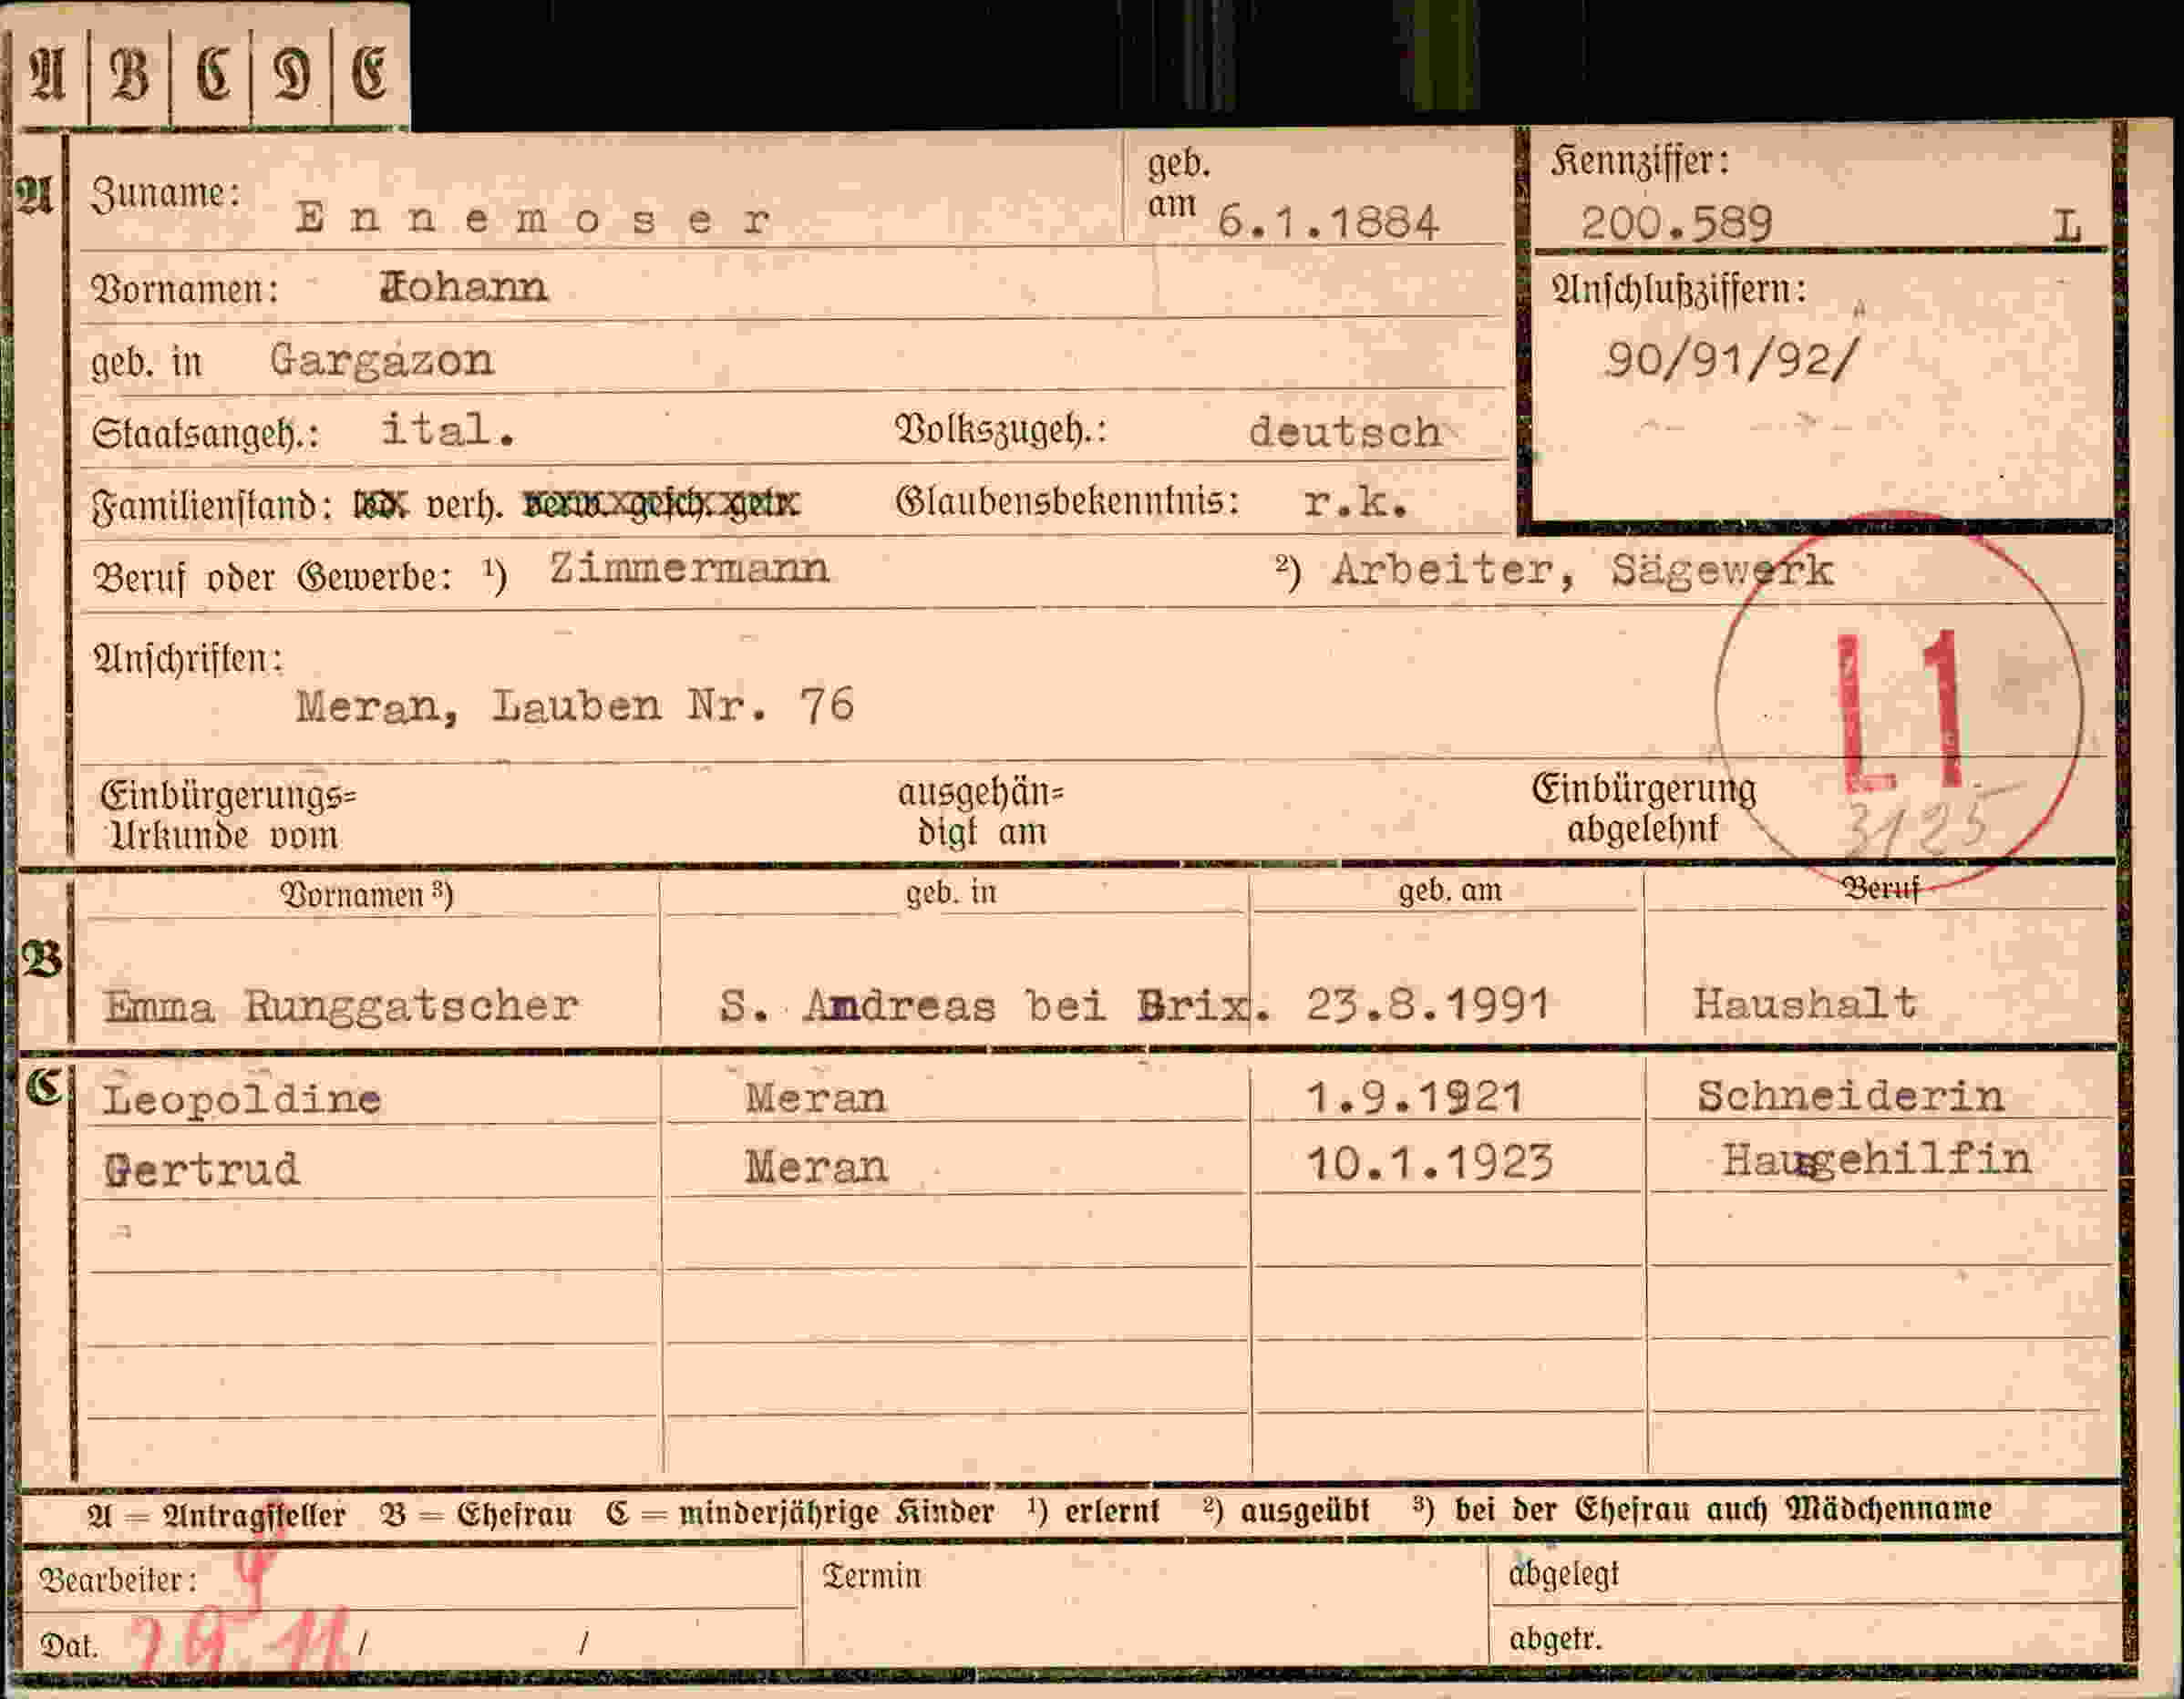 A B C D E
A
Zuname: Ennemoser geb. am 6.1.1884 Kennziffer: 200.589 L
Vornamen: Johann Anschlußziffern:
geb. in Gargazon 90/91/92/
Staatsangeh.: ital. Volkszugeh.: deutsch
Familienstand: verh. Glaubensbekenntnis: r.k.
Beruf oder Gewerbe: ¹) Zimmermann ²) Arbeiter, Sägewerk
Anschriften:
Meran, Lauben Nr. 76
L1
Einbürgerungs= ausgehän= Einbürgerung
Urkunde vom digt am abgelehnt 3125
Vornamen ³) geb. in geb. am Beruf
B
Emma Runggatscher S. Andreas bei Brix. 23.8.1991 Haushalt
C Leopoldine Meran 1.9.1921 Schneiderin
Gertrud Meran 10.1.1923 Hausgehilfin
A = Antragsteller B = Ehefrau C = minderjährige Kinder ¹) erlernt ²) ausgeübt ³) bei der Ehefrau auch Mädchenname
Bearbeiter: Termin abgelegt
Dat. 29.11 / / abgetr.